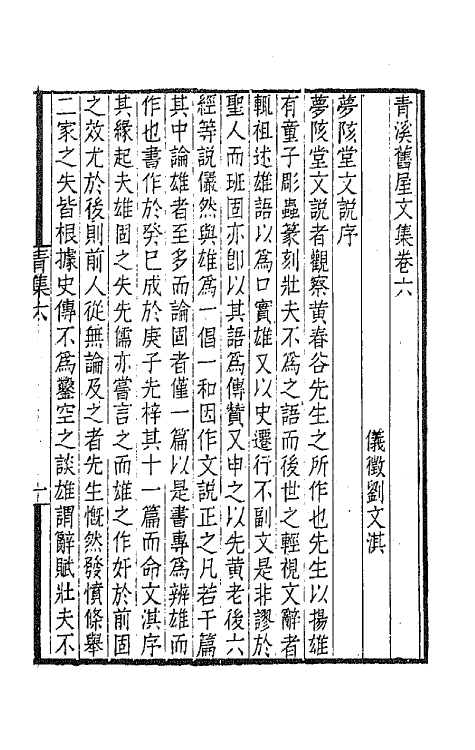 青溪舊屋文集卷六
儀徵劉文淇
夢陔堂文說序
夢陔堂文說者觀察黃春谷先生之所作也先生以揚雄
有童子彫蟲篆刻壯夫不爲之語而後世之輕視文辭者
輒祖述雄語以爲口實雄又以史遷行不副文是非謬於
聖人而班固亦卽以其語爲傳贊又申之以先黃老後六
經等說儼然與雄爲一倡一和因作文說正之凡若干篇
其中論雄者至多而論固者僅一篇以是書專爲辨雄而
作也書作於癸巳成於庚子先梓其十一篇而命文淇序
其緣起夫雄固之失先儒亦嘗言之而雄之作奸於前固
之效尤於後則前人從無論及之者先生慨然發憤條舉
二家之失皆根據史傳不爲鑿空之談雄謂辭賦壯夫不
青集六
一